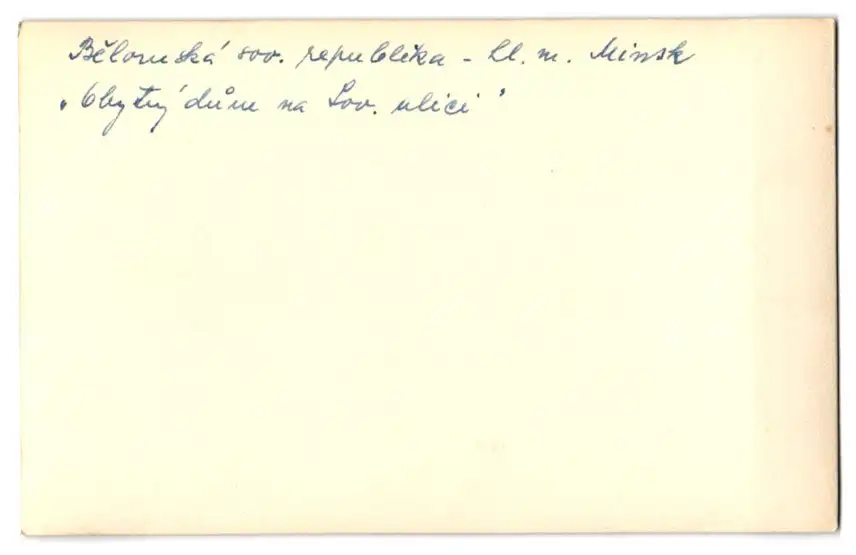 Běloruská sov. republika - hl. m. Minsk
"Obytný dům na Sov. ulici"